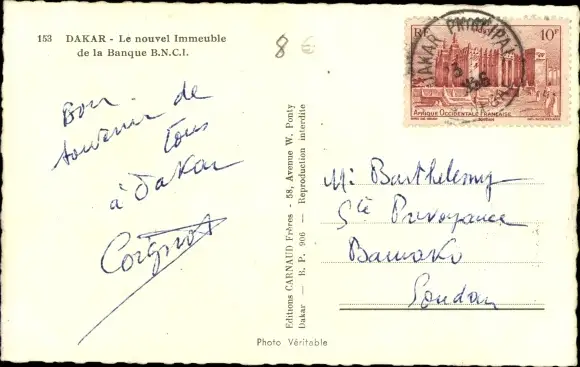 153 DAKAR - Le nouvel Immeuble
de la Banque B.N.C.I.
8 €
Bon
souvenir de
tous
à Dakar
Coignot
Editions CARNAUD Frères - 58, Avenue W. Ponty
Dakar - B. P. 906 - Reproduction interdite
Photo Véritable
RF 10F
DAKAR PRINCIPAL
AFRIQUE OCCIDENTALE FRANÇAISE
Mr Barthelemy
Sté Prevoyance
Bamako
Soudan